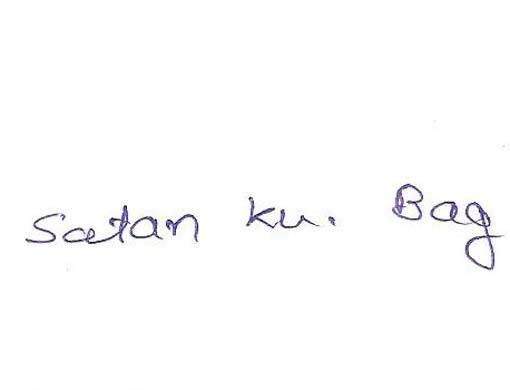 Satan Ku. Bag